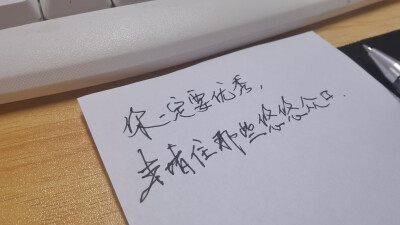 你一定要优秀，
堵住那些悠悠众口.